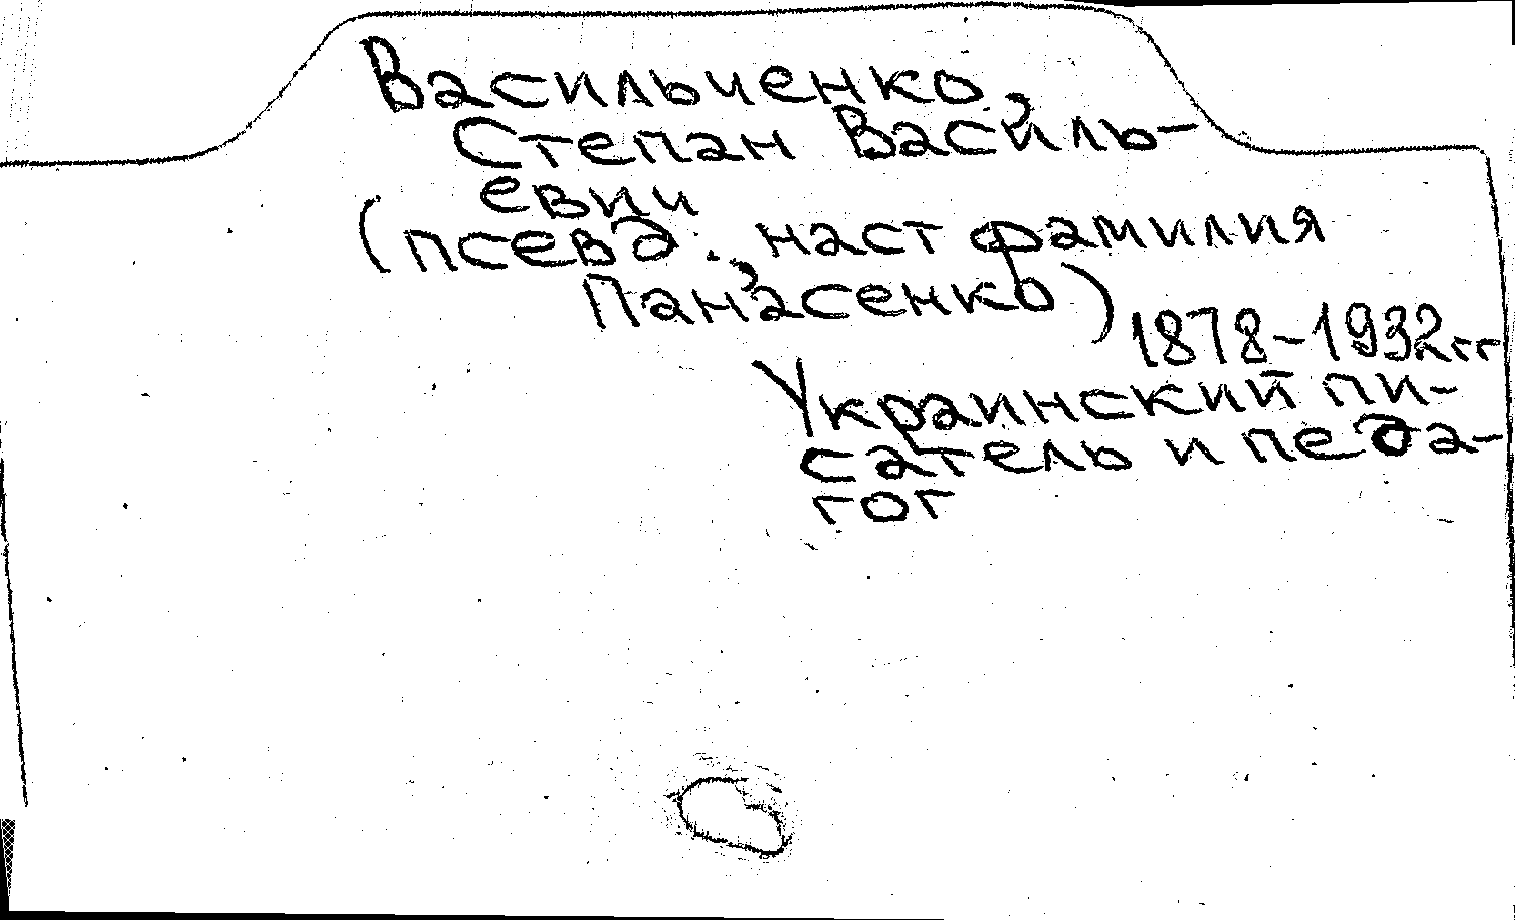 Васильченко,
Степан Василь-
евич
(псевд., наст фамилия
Панасенко)
1878-1932гг
Украинский пи-
сатель и педа-
гог